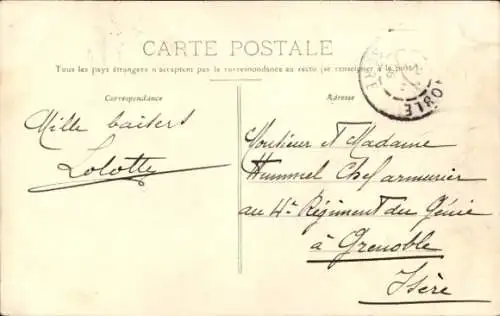 CARTE POSTALE
Tous les pays étrangers n'acceptent pas la correspondance au recto (se renseigner à la poste)
Correspondance
Adresse
Mille baisers
Lolotte
Monsieur et Madame
Hummel Chef armurier
au 4e Régiment du Génie
à Grenoble
Isère
NOBLE
ISERE